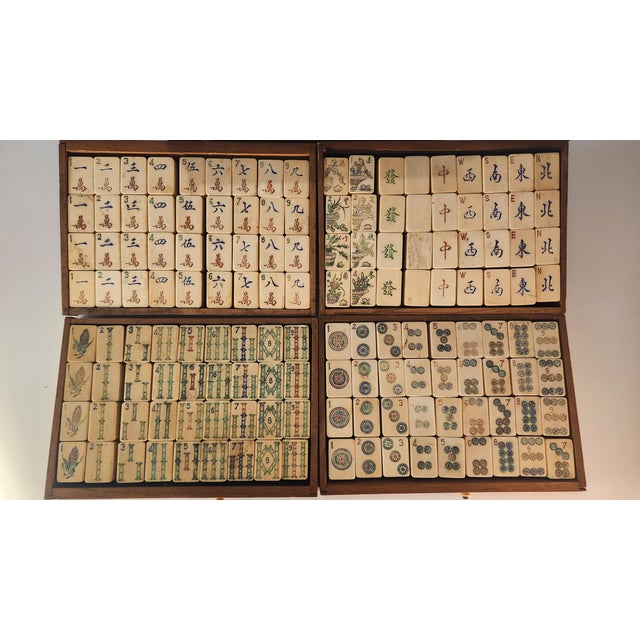 1 2 3 4 5 6 7 8 9
一 二 三 四 伍 六 七 八 九
萬 萬 萬 萬 萬 萬 萬 萬 萬
1 2 3 4 5 6 7 8 9
一 二 三 四 伍 六 七 八 九
萬 萬 萬 萬 萬 萬 萬 萬 萬
1 2 3 4 5 6 7 8 9
一 二 三 四 伍 六 七 八 九
萬 萬 萬 萬 萬 萬 萬 萬 萬
1 2 3 4 5 6 7 8 9
一 二 三 四 伍 六 七 八 九
萬 萬 萬 萬 萬 萬 萬 萬 萬
W S E N
發 中 西 南 東 北
W S E N
發 中 西 南 東 北
W S E N
發 中 西 南 東 北
W S E N
發 中 西 南 東 北
2 3 4 5 6 7 8 9
2 3 4 5 6 7 8 9
2 3 4 5 6 7 8 9
2 3 4 5 6 7 8 9
1 2 3 4 5 6 7 8 9
1 2 3 4 5 6 7 8 9
1 2 3 4 5 6 7 8 9
1 2 3 4 5 6 7 8 9